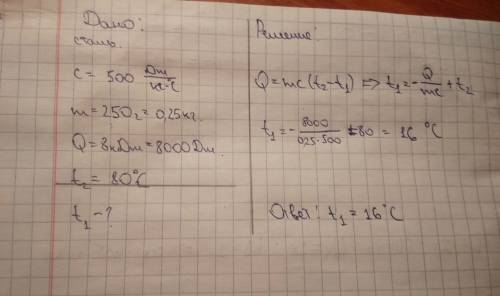 Дано:
сталь.
c = 500 Дж/кг·°C
m = 250г = 0,25кг.
Q = 8кДж = 8000Дж.
t₂ = 80°C
t₁ - ?
Решение:
Q = mc(t₂-t₁) => t₁ = -Q/mc + t₂
t₁ = - 8000/0,25·500 + 80 = 16 °C
Ответ: t₁ = 16°C